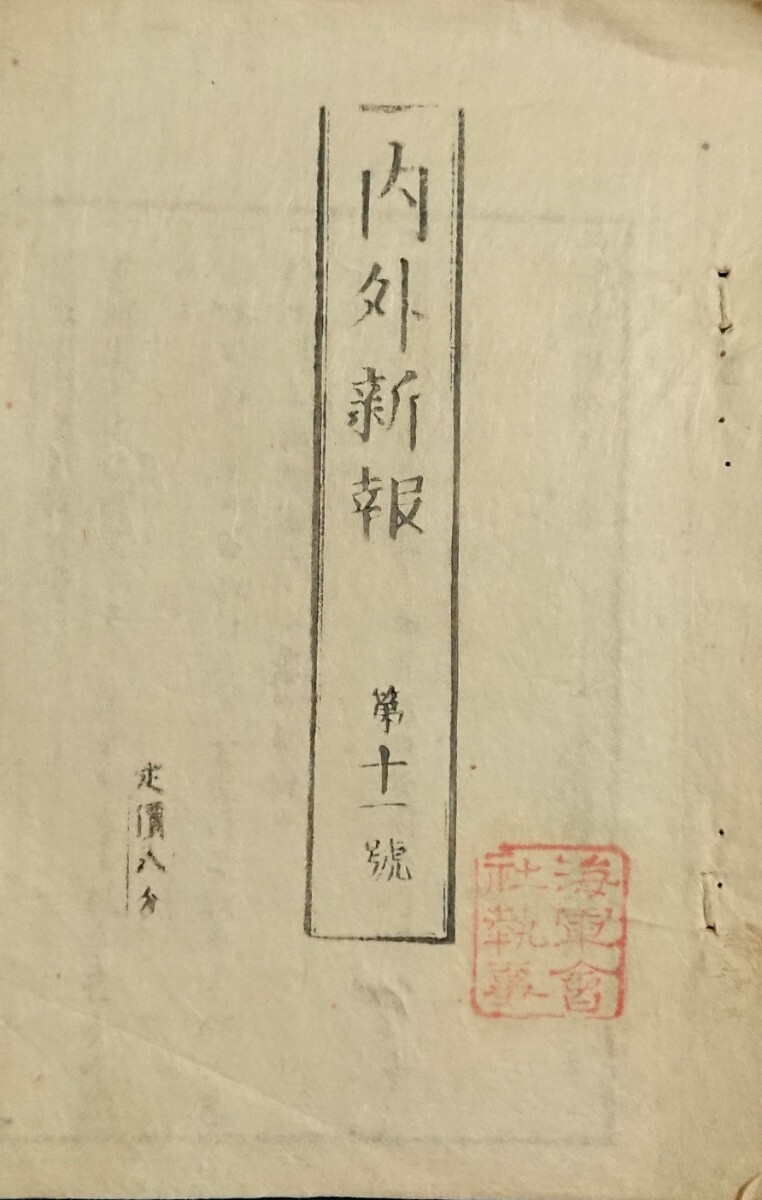 内外新報
第十一號
定價八分
海軍會
社執事